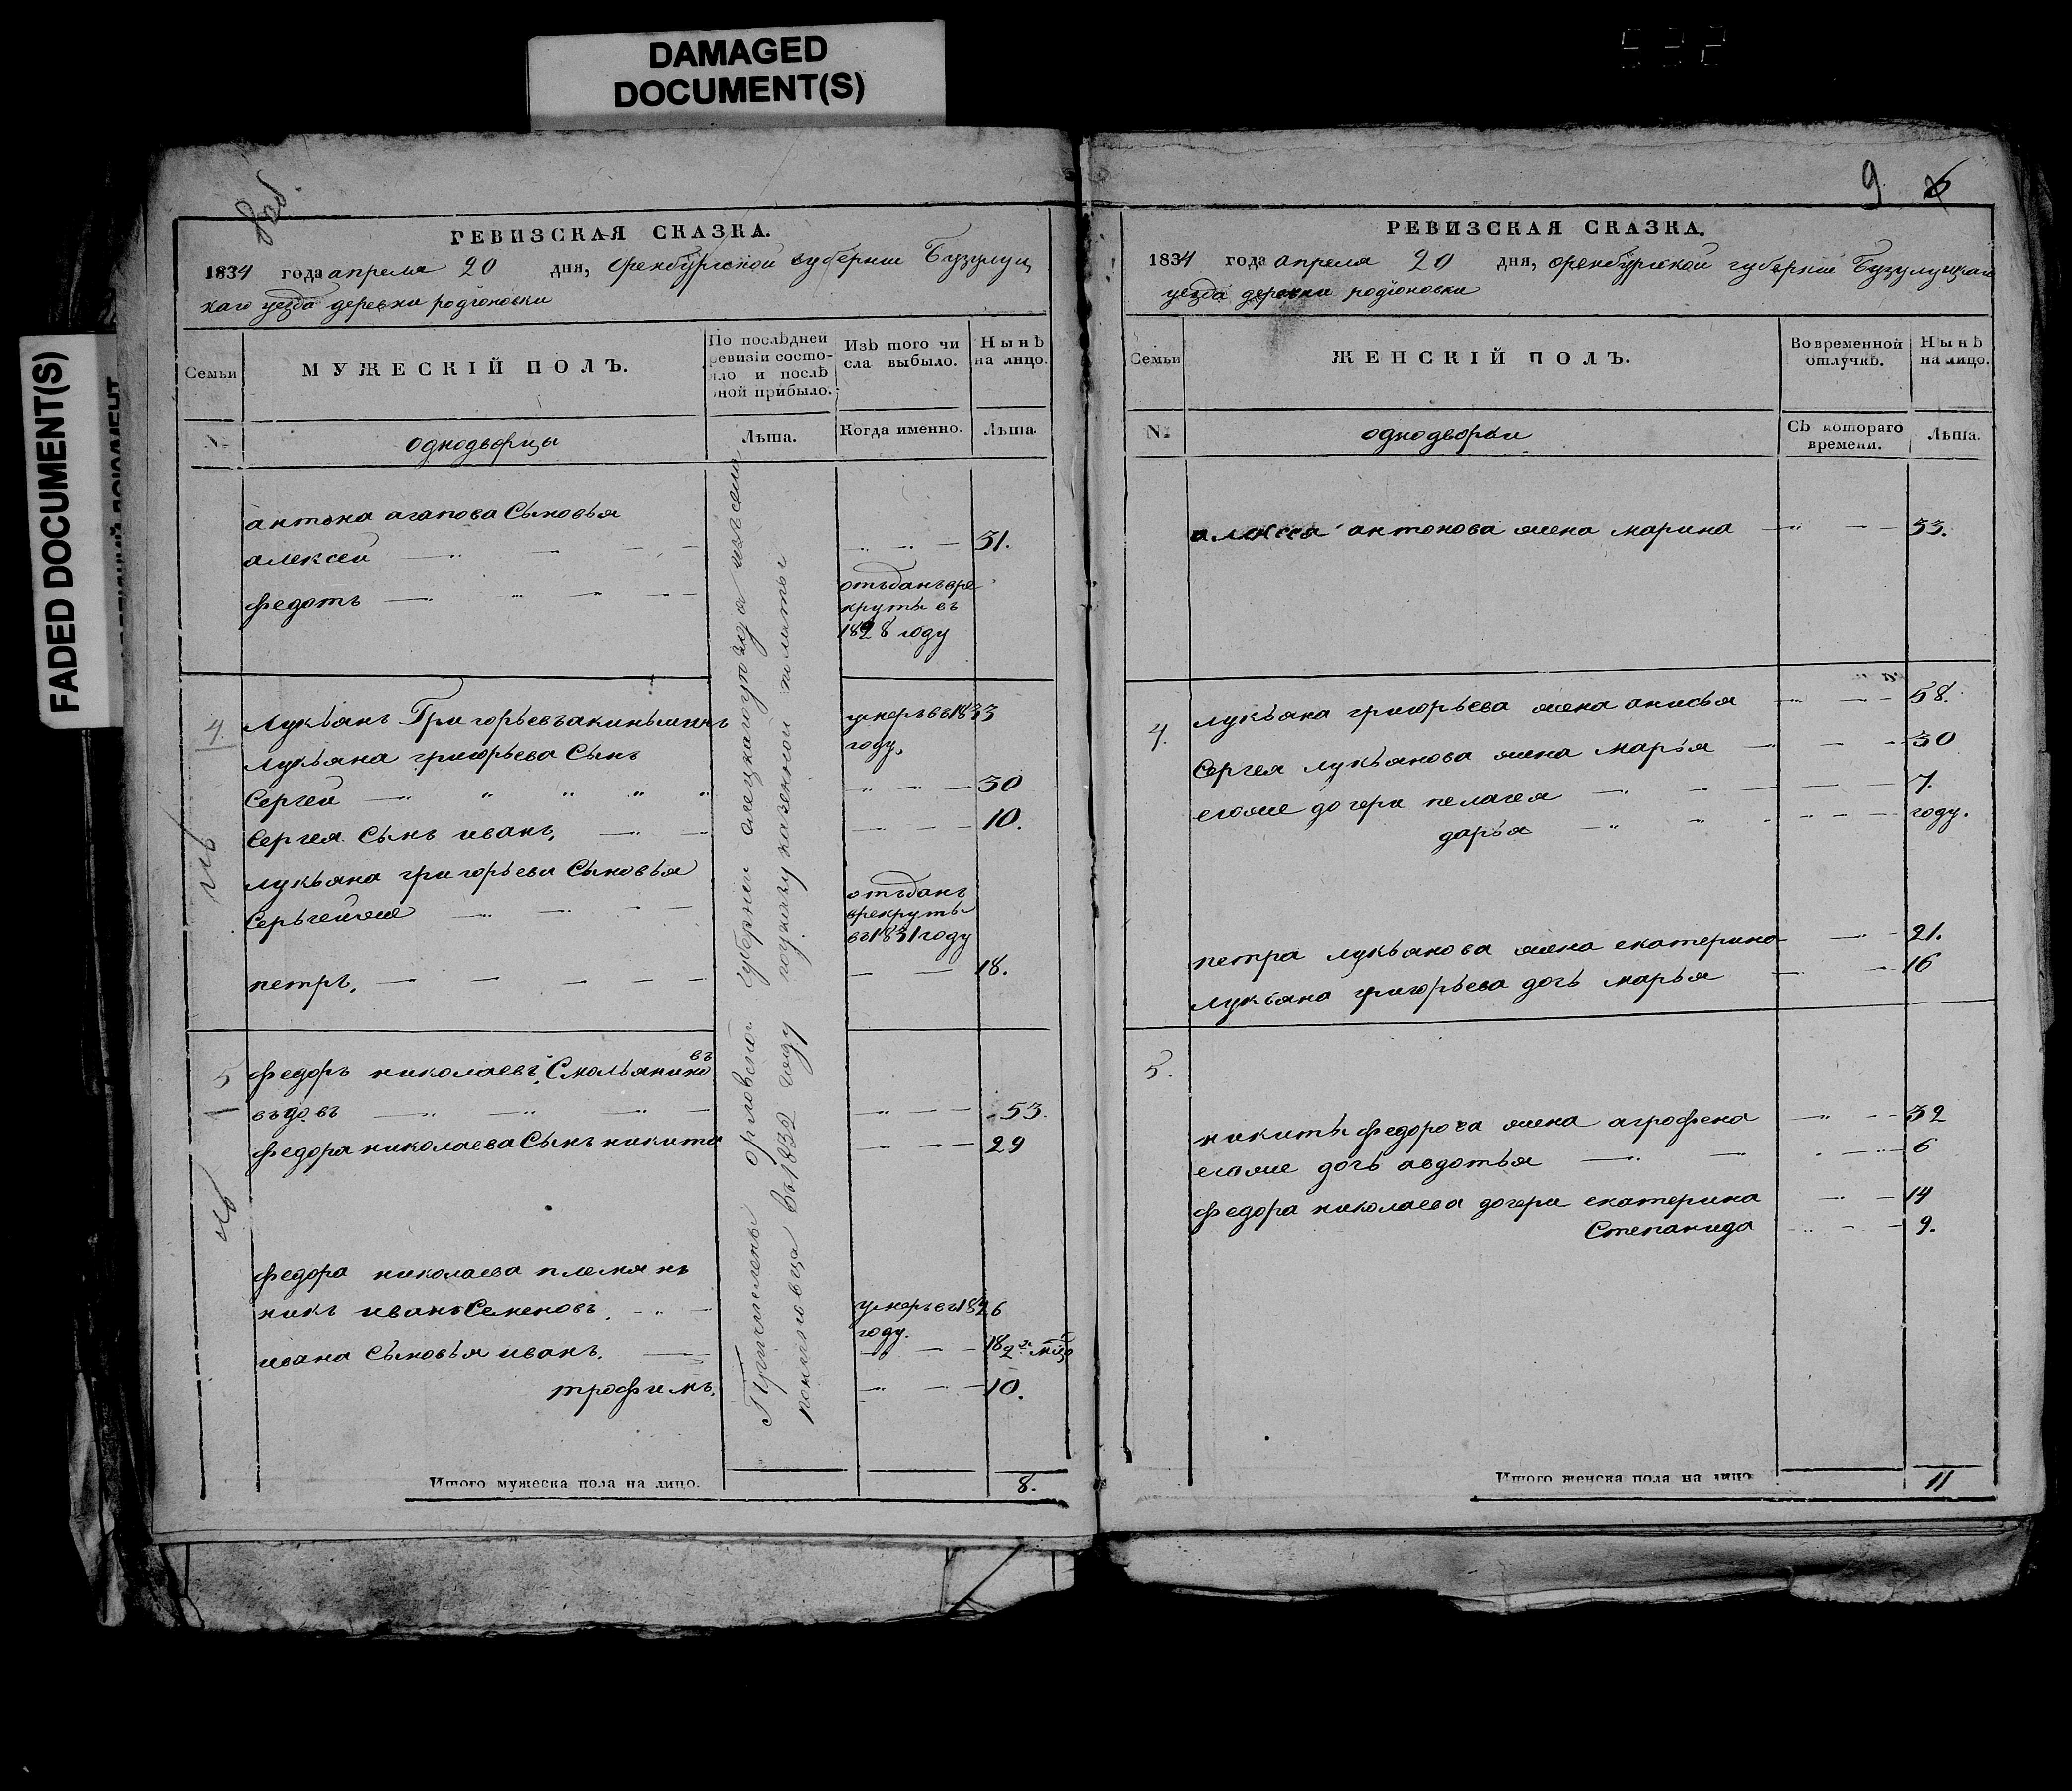 DAMAGED
DOCUMENT(S)
FADED DOCUMENT(S)
8об.
РЕВИЗСКАЯ СКАЗКА.
1834 года апреля 20 дня, Оренбургской губернии Бузулуц
каго уезда деревни родіоновки
Семьи
МУЖЕСКІЙ ПОЛЪ.
По послѣдней
ревизіи состо-
яло и послѣ
оной прибыло.
Изъ того чи
сла выбыло.
Нынѣ
на лицо.
однодворцы
Лѣта.
Когда именно.
Лѣта.
антона агапова Сыновья
алексей 31.
федотъ отъданъ вре
круты въ
1828 году
4. Лукьянъ Григорьевъ умеръ въ 1833
году.
лукьяна григорьева Сынъ
Сергей 30
Сергея Сынъ иванъ, 10.
лукьяна григорьева Сыновья
Серьгейже отъдан
врекруты
въ 1831 году
петръ, 18.
5 федоръ николаевъ, Смольянино
въ
въдовъ 53.
федора николаева Сынъ никита 29
федора николаева племян
никъ иванъ Семеновъ. умеръ въ 1826
году.
ивана Сыновья иванъ. 18
трофимъ. 10.
Причислены орловской губерніи елецкаго уезда изъ
въ 1832 году по указу казенной палаты
Итого мужеска пола на лицо. 8.
9
РЕВИЗСКАЯ СКАЗКА.
1834 года апреля 20 дня, оренбургской губерніи Бузулуцкаго
уезда деревни родіоновки
Семьи
ЖЕНСКІЙ ПОЛЪ.
Во временной
отлучкѣ.
Нынѣ
на лицо.
№
однодворки
Съ котораго
времени.
Лѣта.
алексея антонова жена марина 33.
4. лукьяна григорьева жена анисья 58.
Сергея лукьянова жена марья 30
егоже дочери пелагея 7.
дарья году.
петра лукьянова жена екатерина 21.
лукьяна григорьева дочь марья 16
5.
никиты федорова жена агрофена 32
егоже дочь авдотья 6
федора николаева дочери екатерина 14
Степанида 9.
Итого женска пола на лицо 11